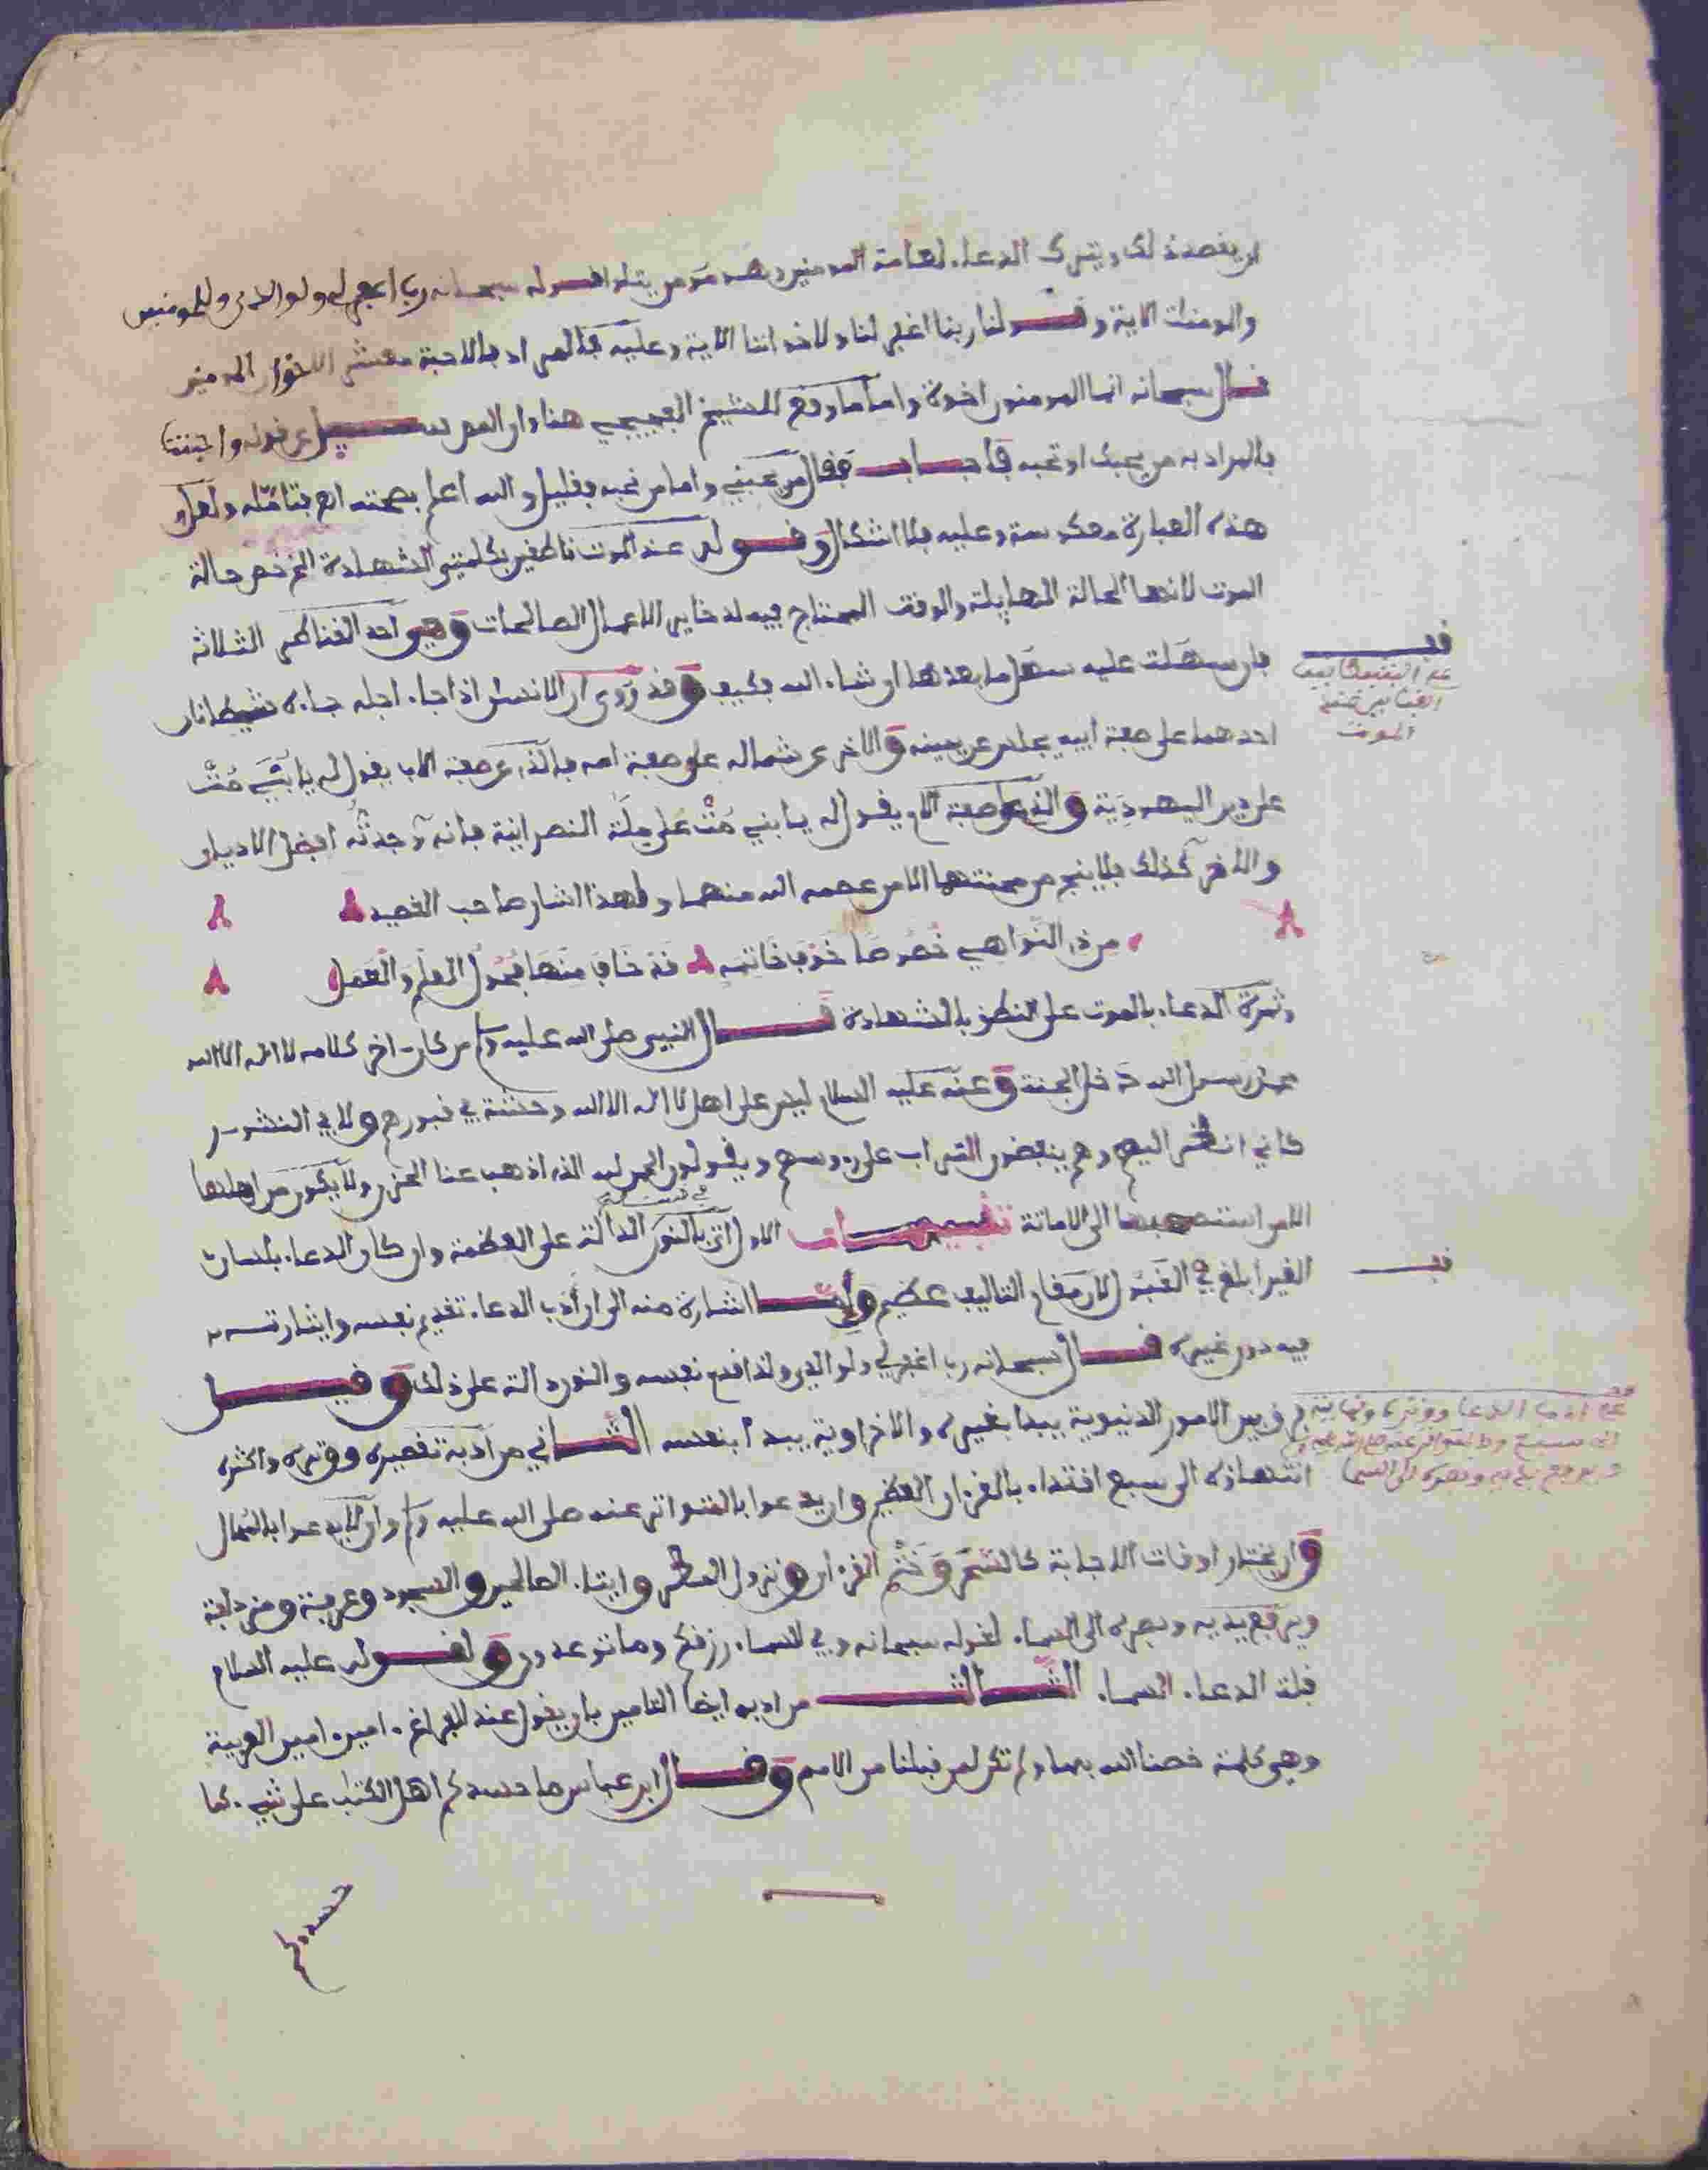 ان يقصد ذلك ويترك الدعاء لعامة المومنين وهم من يتلوا قوله سبحانه رب اغفر لي ولوالدي وللمومنين
والمومنات الاية وقولنا ربنا اغفر لنا ولاخواننا الاية وعليه فالمراد بالاحبة معشر الاخوان المومنين
قال سبحانه انما المومنون اخوة واما ما وقع للشيخ هنا وان المو سيل عن قوله واحبتنا
فالمراد به من يحبك او تحبه فاجاب فقال من يحبني واما من نحبه فقليل والله اعلم بصحته اه بتامله ولعل
هذه العبارة معكوسة وعليه فلا اشكال وقوله عند الموت ناطقين بكلمتي الشهادة الخ خص حالة
الموت لانها الحالة الهايلة والوقت المحتاج فيه لذخاير الاعمال الصالحات وهي احد القناطر الثلاثة
فان سهلت عليه سهل ما بعدها ان شاء الله فكيف وقد روي ان الانسان اذا جاء اجله جاءه شيطانان
احدهما على صفة ابيه يجلس عن يمينه والاخر عن شماله على صفة امه فالذي على صفة الاب يقول له يا بني مت
على دين اليهودية والذي على صفة الام يقول له يا بني مت على ملة النصرانية فانه وجدته افضل الاديان
والاخر كذلك فلا ينجو من محنتهما الا من عصمه الله منهما ولهذا اشار صاحب القصيد
من ذي النواهي خصوصا خوف خاتمه قد خاف منها فحول العلم والعمل
وثمرة الدعاء بالموت على النطق بالشهادة قال النبي صلى الله عليه وسلم من كان اخر كلامه لا اله الا الله
محمد رسول الله دخل الجنة وعنه عليه السلام ليس على اهل لا اله الا الله وحشة في قبورهم ولا في النشور
كاني انظر اليهم وهم ينفضون التراب على رءوسهم ويقولون الحمد لله الذي اذهب عنا الحزن ولا يكون من اهلها
الا من استصحبها الى الاماتة تنبيهات الاول اتى بالنون الدالة على العظمة وان كان الدعاء بلسان
الغير ابلغ في القبول لان مقام التاليف عظيم واشارة منه الى ان أدب الدعاء تقديم نفسه وايثار نفسه به
فيه دون غيره قال سبحانه رب اغفر لي ولوالدي ولذا قدم نفسه والنون دالة على ذلك وقيل
في غير الامور الدنيوية يبدا بغيره والاخراوية يبدا بنفسه الثاني من ادبه تقصيره ووتره واكثره
انتهاءه الى سبع اقتداء بالقرءان العظيم وان يدعوا بالمتواتر عنه صلى الله عليه وسلم وان لا يدعوا بالمحال
وان يختار اوقات الاجابة كالسحر وختم القرءان ونزول المطر ولقاء الصالحين والسجود وعرفة ومزدلفة
ويرفع يديه وبصره الى السماء لقوله سبحانه وفي السماء رزقكم وما توعدون ولقوله عليه السلام
قبلة الدعاء السماء الثالث من ادبه ايضا التامين بان يقول عند الفراغ امين امين العربية
وهي كلمة خصنا الله بها ولم تكن لمن قبلنا من الامم وقال ابن عباس ما حسدكم اهل الكتاب على شيء كما
حسدوكم
قف
الموت
قف
الى سبع